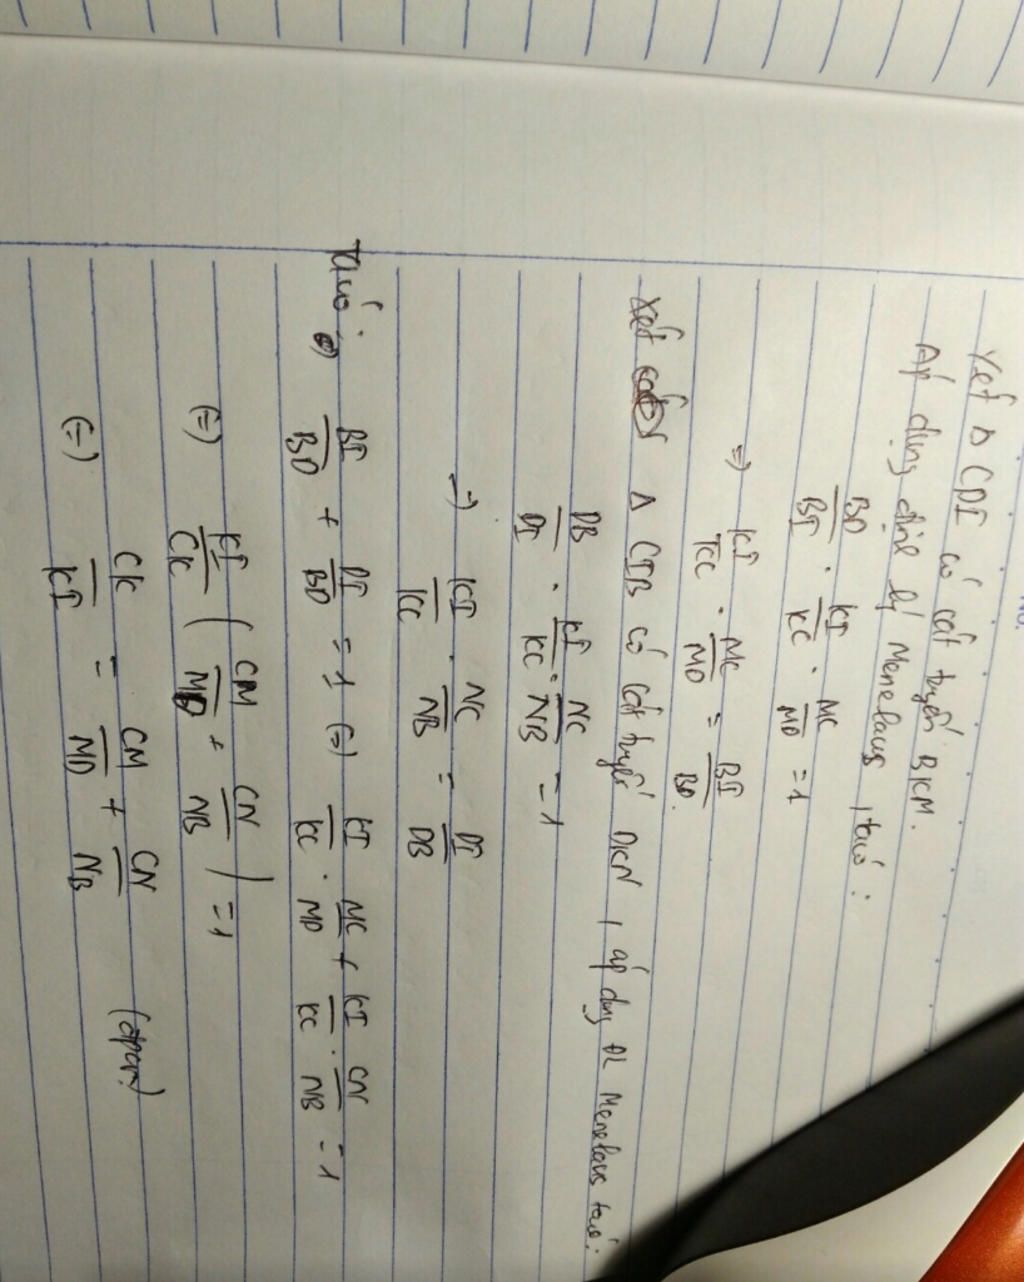 No.
Xét Δ CDI có cát tuyến BKM.
Áp dụng định lý Menelaus, ta có:
BD/BI . KI/KC . MC/MD = 1
=) KI/KC . MC/MD = BI/BD.
Xét Δ CIB có cát tuyến DKN, áp dụng ĐL Menelaus ta có:
DB/DI . KI/KC . NC/NB = 1
=) KI/KC . NC/NB = DI/DB
Ta có: BI/BD + DI/BD = 1 (=) KI/KC . MC/MD + KI/KC . CN/NB = 1
(=) KI/CK ( CM/MD + CN/NB ) = 1
(=) CK/KI = CM/MD + CN/NB (đpcm)